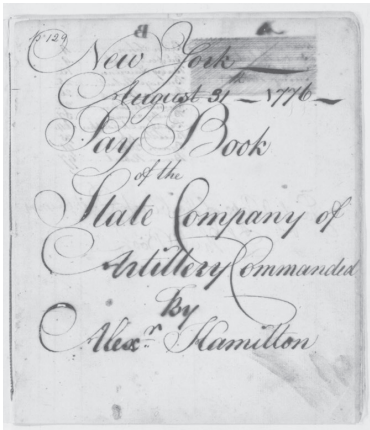 p 129
New York
August 31th - 1776 -
Pay Book
of the
State Company of
Artillery Commanded
By
Alexr. Hamilton